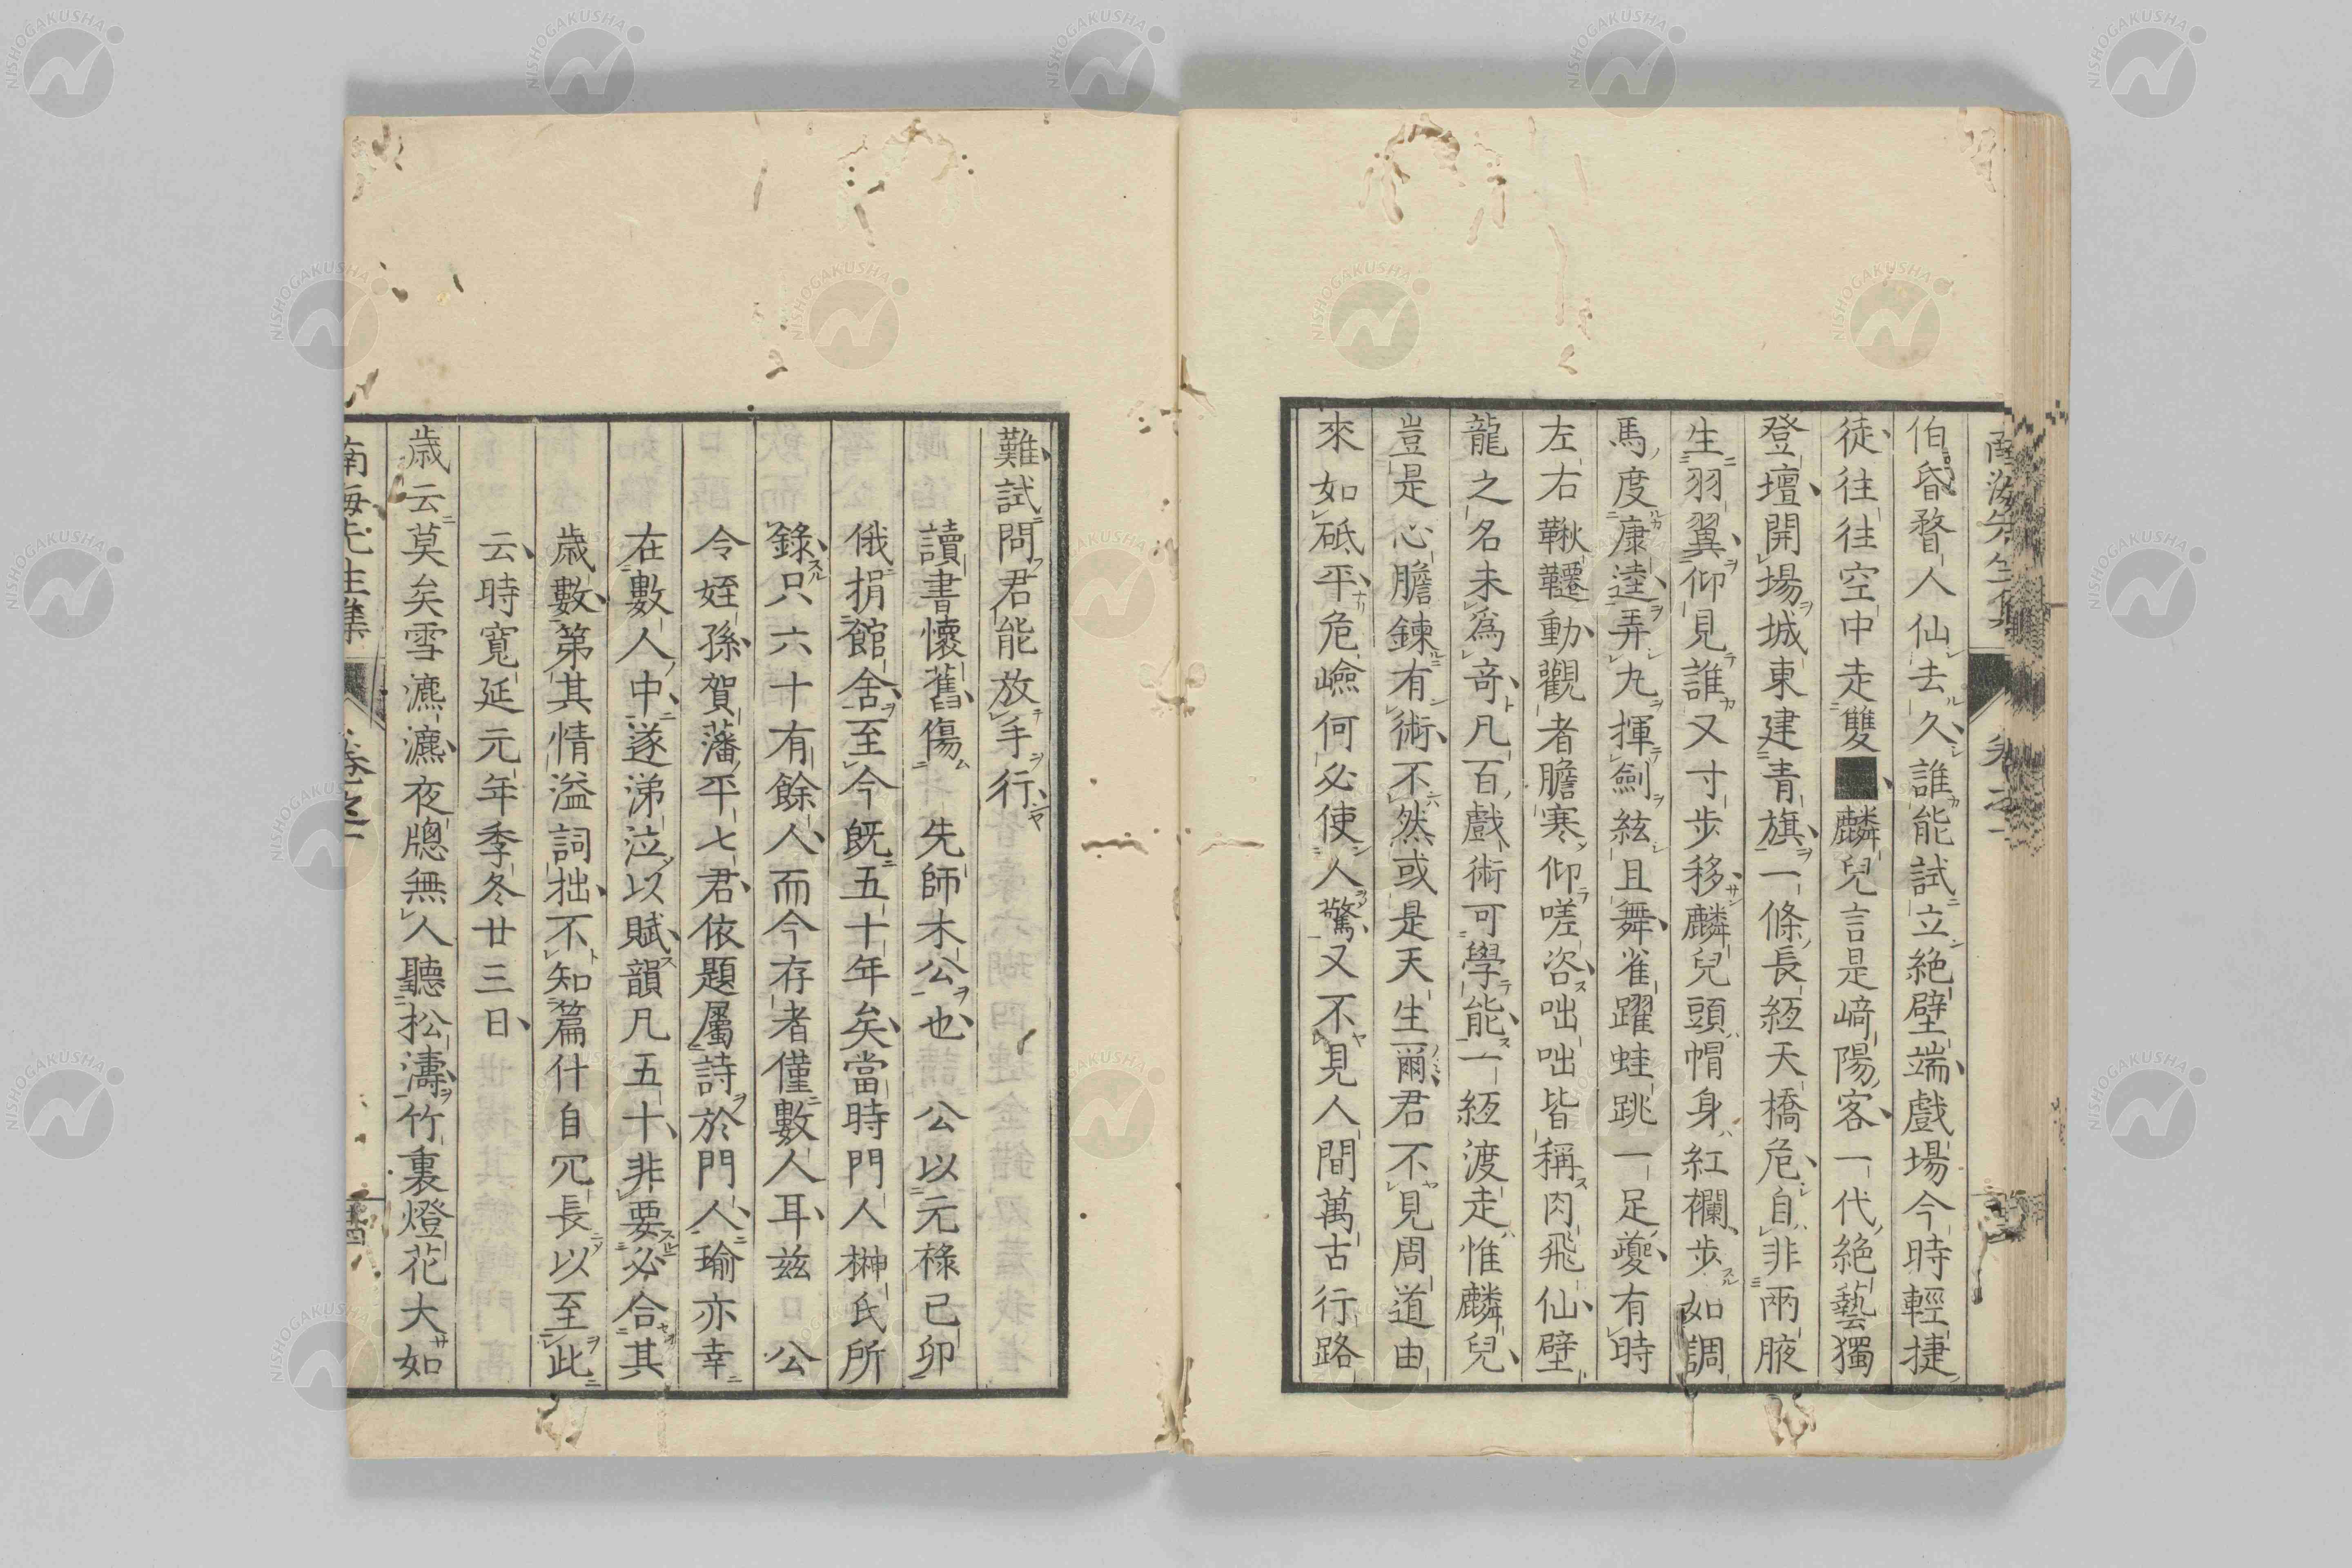 伯昏瞀人仙去久誰能試立絶壁端戲場今時輕捷
徒往往空中走雙■麟兒言是﨑陽客一代絶藝獨
登壇開場城東建青旗一條長絚天橋危自非兩腋
生羽翼仰見誰又寸步移麟兒頭帽身紅襴步如調
馬度康逵弄丸揮劍絃且舞雀躍蛙跳一足夔有時
左右鞦韆動觀者膽寒仰嗟咨咄咄皆稱肉飛仙壁
龍之名未爲竒凡百戲術可學能一絚渡走惟麟兒
豈是心膽鍊有術不然或是天生爾君不見周道由
來如砥平危嶮何必使人驚又不見人間萬古行路
難試問君能放手行
讀書懷舊傷 先師木公也 公以元祿己卯
俄捐館舍至今既五十年矣當時門人榊氏所
錄只六十有餘人而今存者僅數人耳茲 公
令姪孫賀藩平七君依題屬詩於門人瑜亦幸
在數人中遂涕泣以賦韻凡五十非要必合其
歳數第其情溢詞拙不知篇什自冗長以至此
云時寬延元年季冬廿三日
歳云莫矣雪漉漉夜牕無人聽松濤竹裏燈花大如
南海先生集 卷之一